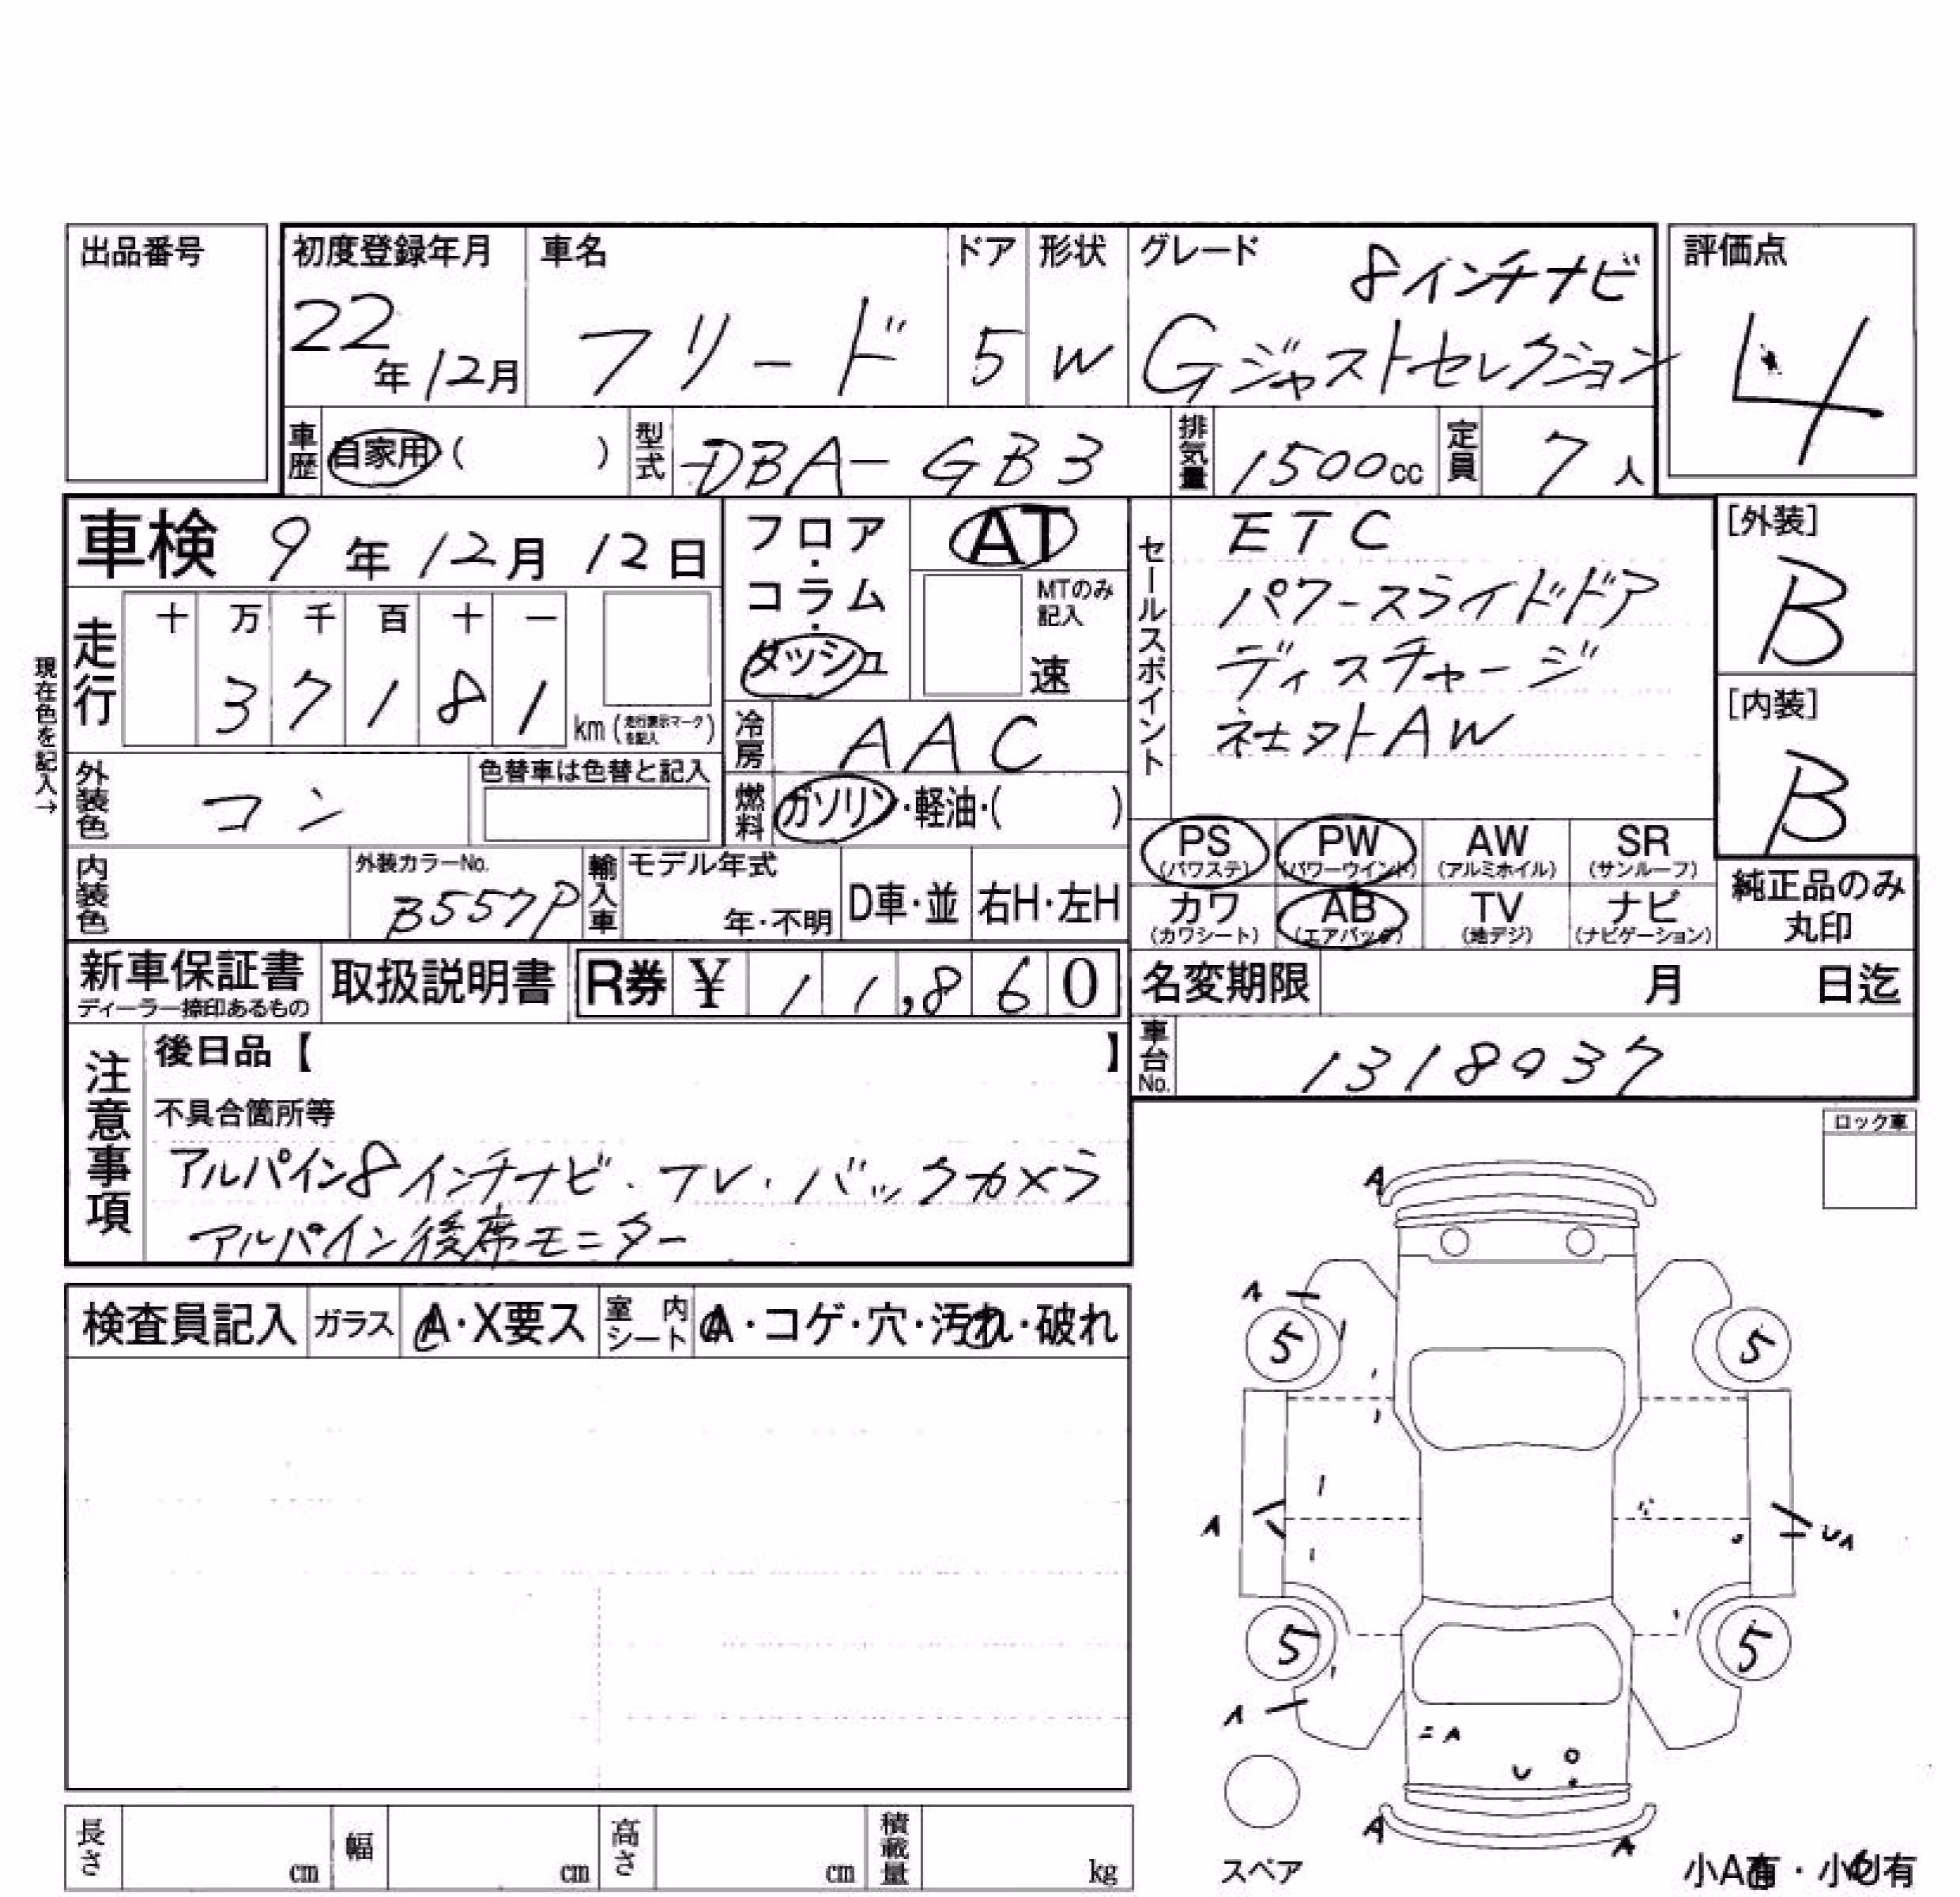 出品番号
初度登録年月 車名 ドア 形状 グレード 8インチナビ 評価点
22年12月 フリード 5 W Gジャストセレクション 4
車歴 自家用( ) 型式 DBA-GB3 排気量 1500cc 定員 7人
車検 9年12月12日
フロア・コラム・ダッシュ
AT
MTのみ記入
速
セールスポイント
ETC
パワースライドドア
ディスチャージ
社外AW
[外装]
B
[内装]
B
現在色を記入→
走行 十 万 千 百 十 一
3 7 1 8 1 km(走行表示マークを記入)
冷房 AAC
外装色 コン 色替車は色替と記入
燃料 ガソリン・軽油・( )
PS(パワステ) PW(パワーウインド) AW(アルミホイル) SR(サンルーフ)
カワ(カワシート) AB(エアバッグ) TV(地デジ) ナビ(ナビゲーション)
純正品のみ丸印
内装色 外装カラーNo. B557P 輸入車 モデル年式 年・不明 D車・並 右H・左H
新車保証書 ディーラー捺印あるもの 取扱説明書 R券 ¥ 11,860
名変期限 月 日迄
車台No. 1318937
注意事項
後日品【 】
不具合箇所等
アルパイン8インチナビ・TV・バックカメラ
アルパイン後席モニター
ロック車
検査員記入 ガラス A・X要ス 室内シート A・コゲ・穴・汚れ・破れ
A
A
5 5
A UA
5 5
A
=A
U
A A
スペア
小A有・小U有
長さ cm 幅 cm 高さ cm 積載量 kg